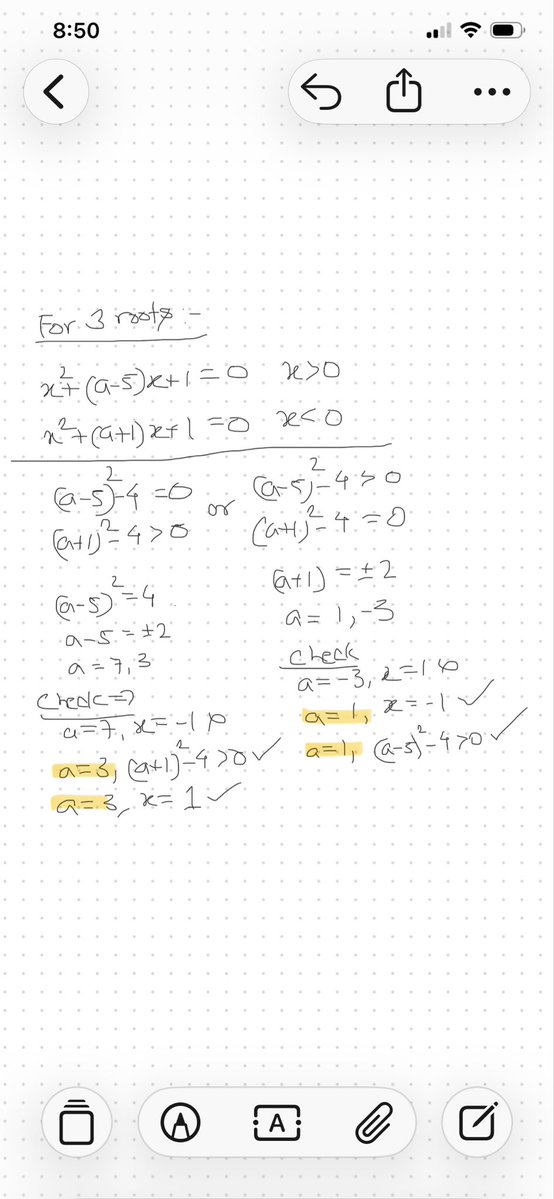 8:50
For 3 roots :-
x²+(a-5)x+1=0 x>0
x²+(a+1)x+1=0 x<0
(a-5)²-4=0 or (a-5)²-4>0
(a+1)²-4>0 (a+1)²-4=0
(a-5)²=4
a-5=±2
a=7,3
check=>
a=7, x=-1
a=3, (a+1)²-4>0✓
a=3, x=1✓
(a+1)=±2
a=1,-3
check
a=-3, x=1
a=1, x=-1✓
a=1, (a-5)²-4>0✓
A